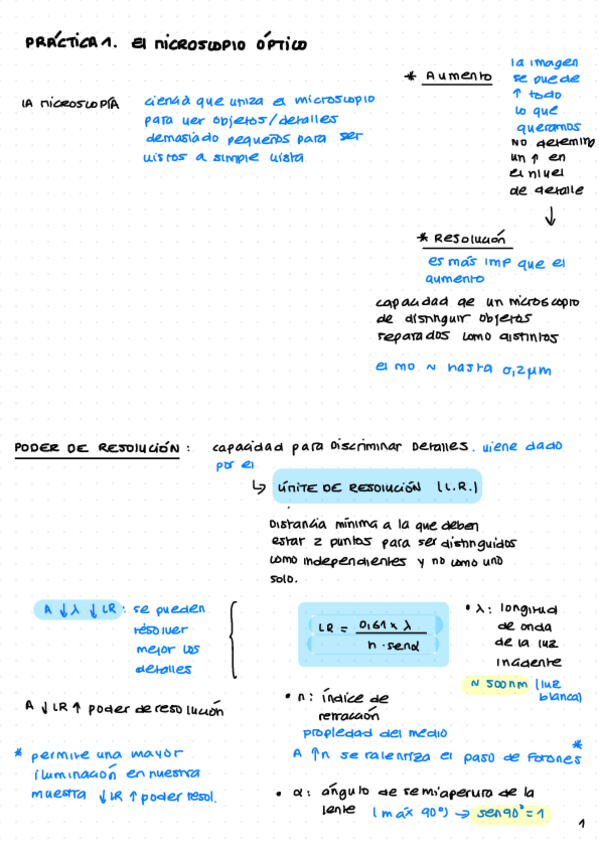 PRÁCTICA 1. El MICROSCOPIO ÓPTICO
LA MICROSCOPÍA
ciencia que utiliza el microscopio
para ver objetos/detalles
demasiado pequeños para ser
vistos a simple vista
* Aumento
la imagen
se puede
↑ todo
lo que
queramos
NO determina
un ↑ en
el nivel
de detalle
↓
* Resolución
es más imp que el
aumento
capacidad de un microscopio
de distinguir objetos
separados como distintos
el mo ~ hasta 0,2 μm
PODER DE RESOLUCIÓN: capacidad para Discriminar Detalles. viene dado
por el
↳ LÍMITE DE RESOLUCIÓN (L.R.)
Distancia mínima a la que deben
estar 2 puntos para ser distinguidos
como independientes y no como uno
solo.
A ↓ λ ↓ LR: se pueden
resolver
mejor los
detalles
LR = 0,61 × λ / n · senα
• λ: longitud
de onda
de la luz
incidente
~ 500 nm (luz
blanca)
A ↓ LR ↑ poder de resolución
• n: índice de
refracción
propiedad del medio
A ↑ n se ralentiza el paso de fotones *
* permite una mayor
iluminación en nuestra
muestra ↓ LR ↑ poder resol.
• α: ángulo de semiapertura de la
lente (máx 90°) → sen 90° = 1
1